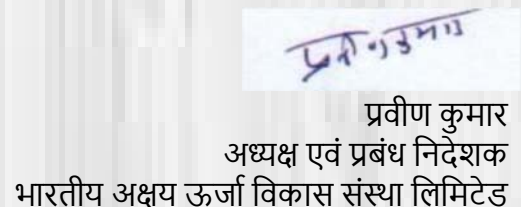 प्रवीण कुमार
प्रवीण कुमार
अध्यक्ष एवं प्रबंध निदेशक
भारतीय अक्षय ऊर्जा विकास संस्था लिमिटेड